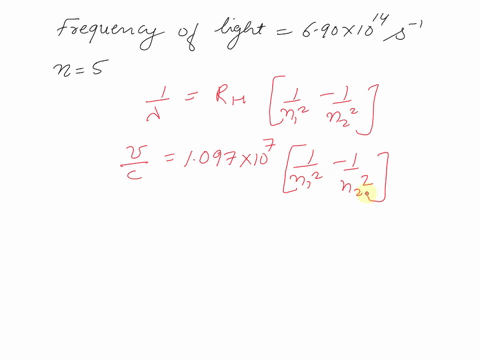 Frequency of light = 6.90×10¹⁴ s⁻¹
n = 5
1/λ = R_H [1/n₁² - 1/n₂²]
ν/c = 1.097×10⁷ [1/n₁² - 1/n₂²]